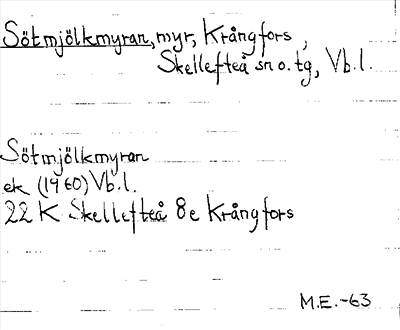 Sötmjölkmyran, myr, Krångfors,
Skellefteå sn o. tg, Vb.l.
Sötmjölkmyran
ek (1960) Vb.l.
22 K Skellefteå 8e Krångfors
M.E.-63